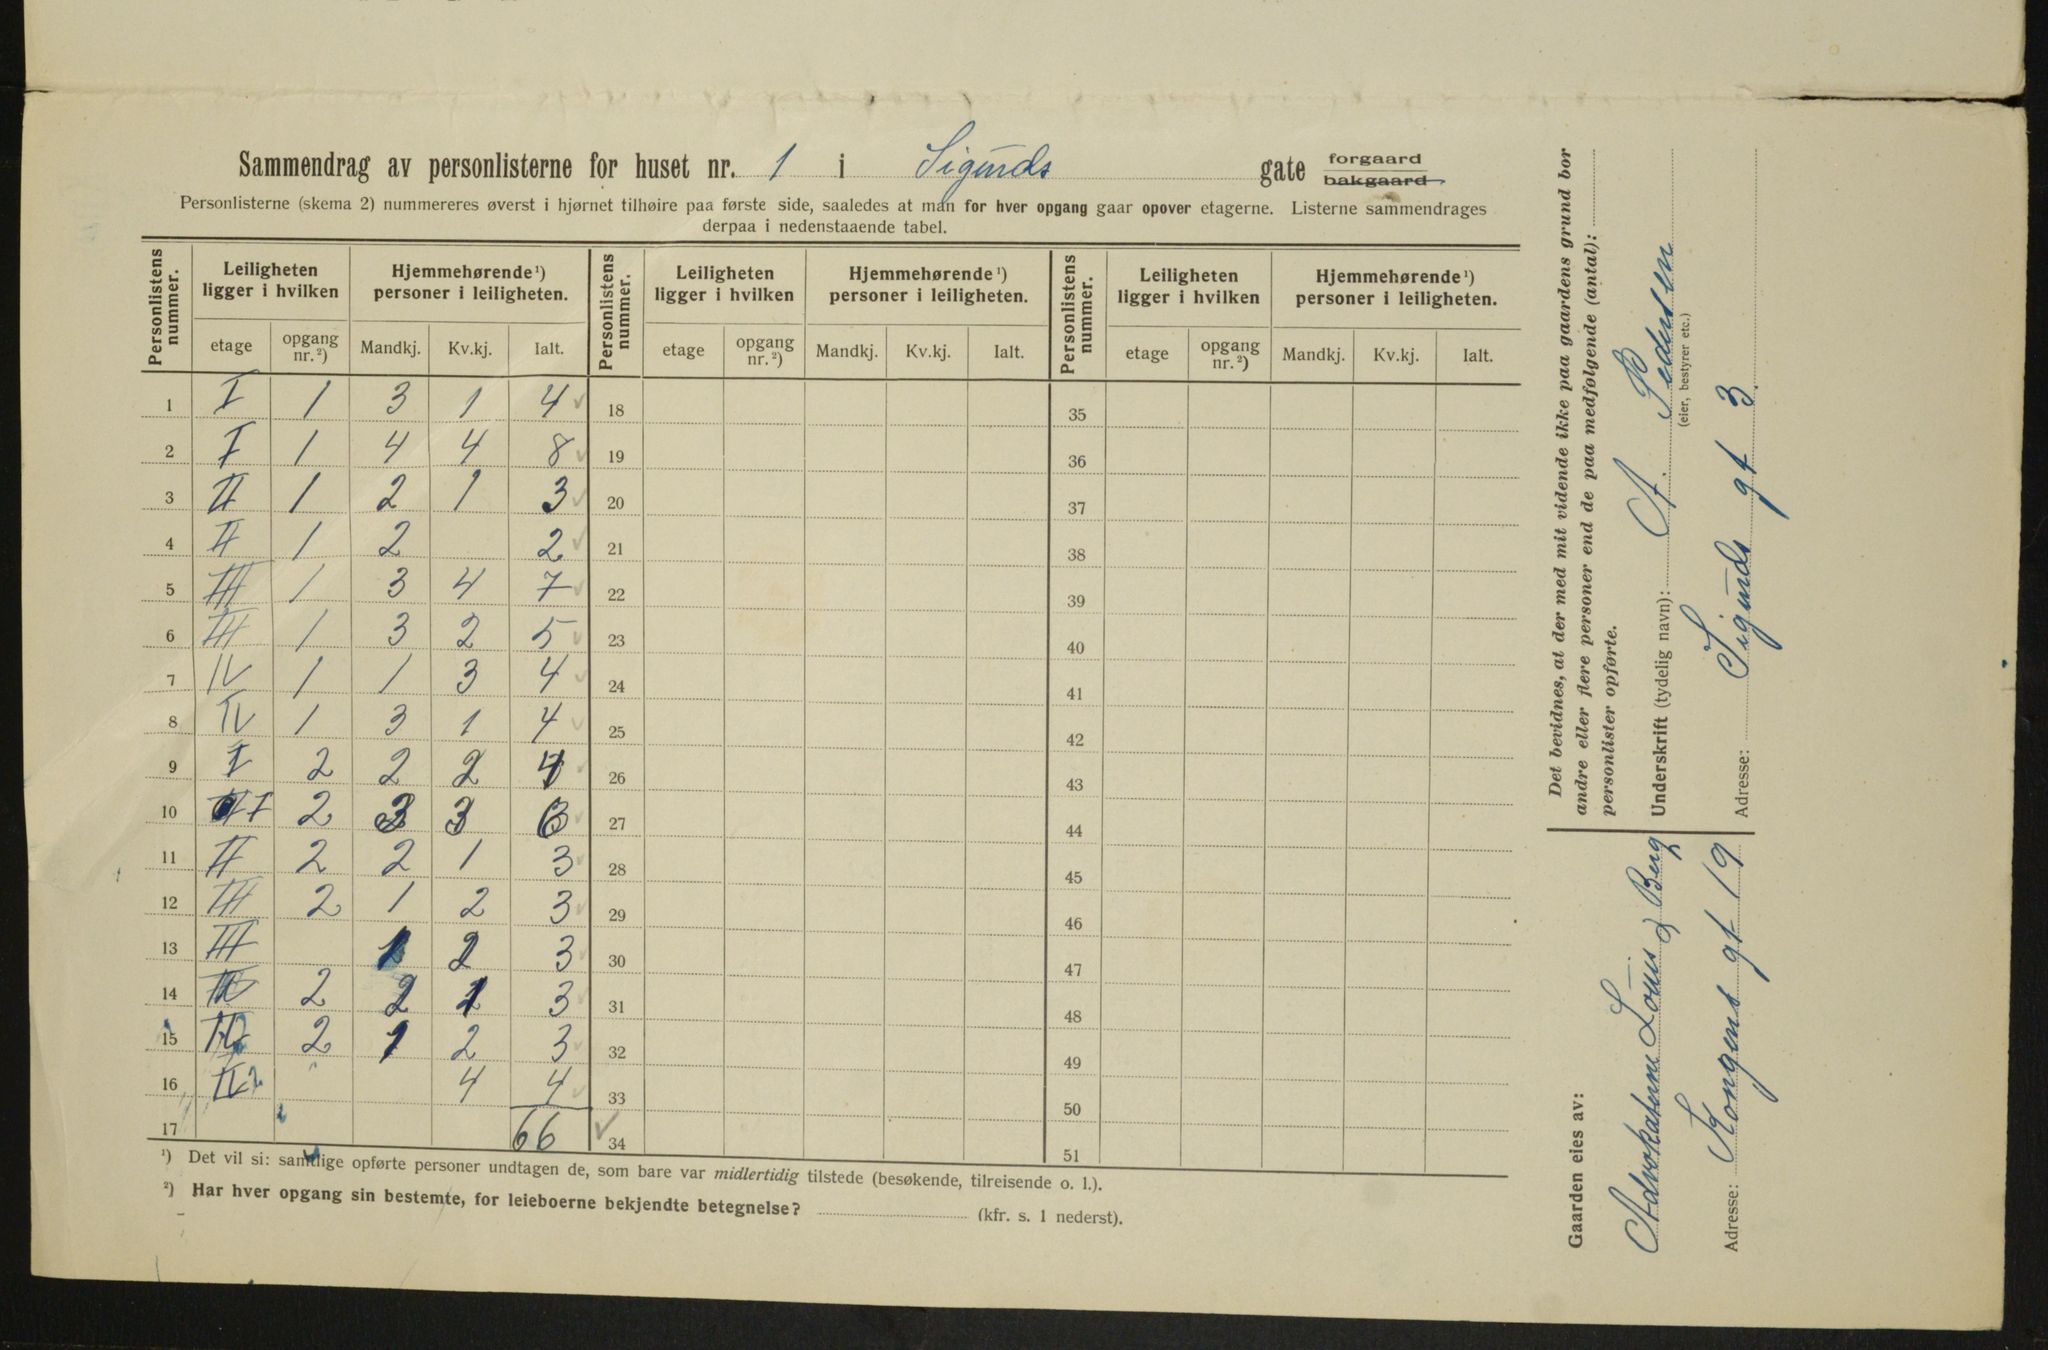 Sammendrag av personlisterne for huset nr. 1 i Sigurds gate forgaard bakgaard
Personlisterne (skema 2) nummereres øverst i hjørnet tilhøire paa første side, saaledes at man for hver opgang gaar opover etagerne. Listerne sammendrages
derpaa i nedenstaaende tabel.
Personlistens nummer. Leiligheten ligger i hvilken Hjemmehørende ¹) personer i leiligheten. Personlistens nummer. Leiligheten ligger i hvilken Hjemmehørende ¹) personer i leiligheten. Personlistens nummer. Leiligheten ligger i hvilken Hjemmehørende ¹) personer i leiligheten.
etage opgang nr. ²) Mandkj. Kv.kj. Ialt. etage opgang nr. ²) Mandkj. Kv.kj. Ialt. etage opgang nr. ²) Mandkj. Kv.kj. Ialt.
1 I 1 3 1 4 18 35
2 I 1 4 4 8 19 36
3 II 1 2 1 3 20 37
4 II 1 2 2 21 38
5 III 1 3 4 7 22 39
6 III 1 3 2 5 23 40
7 IV 1 1 3 4 24 41
8 IV 1 3 1 4 25 42
9 I 2 2 2 4 26 43
10 2 3 3 6 27 44
11 II 2 2 1 3 28 45
12 III 2 1 2 3 29 46
13 III 1 2 3 30 47
14 2 2 1 3 31 48
15 2 1 2 3 32 49
16 IV 4 4 33 50
17 66 34 51
¹) Det vil si: samtlige opførte personer undtagen de, som bare var midlertidig tilstede (besøkende, tilreisende o. l.).
²) Har hver opgang sin bestemte, for leieboerne bekjendte betegnelse? (kfr. s. 1 nederst).
Det bevidnes, at der med mit vidende ikke paa gaardens grund bor
andre eller flere personer end de paa medfølgende (antal):
personlister opførte.
Underskrift (tydelig navn): A. Pedersen
(eier, bestyrer etc.)
Adresse: Sigurds gt 3.
Gaarden eies av:
Advokaterne Louis & Berg
Adresse: Kongens gt 19